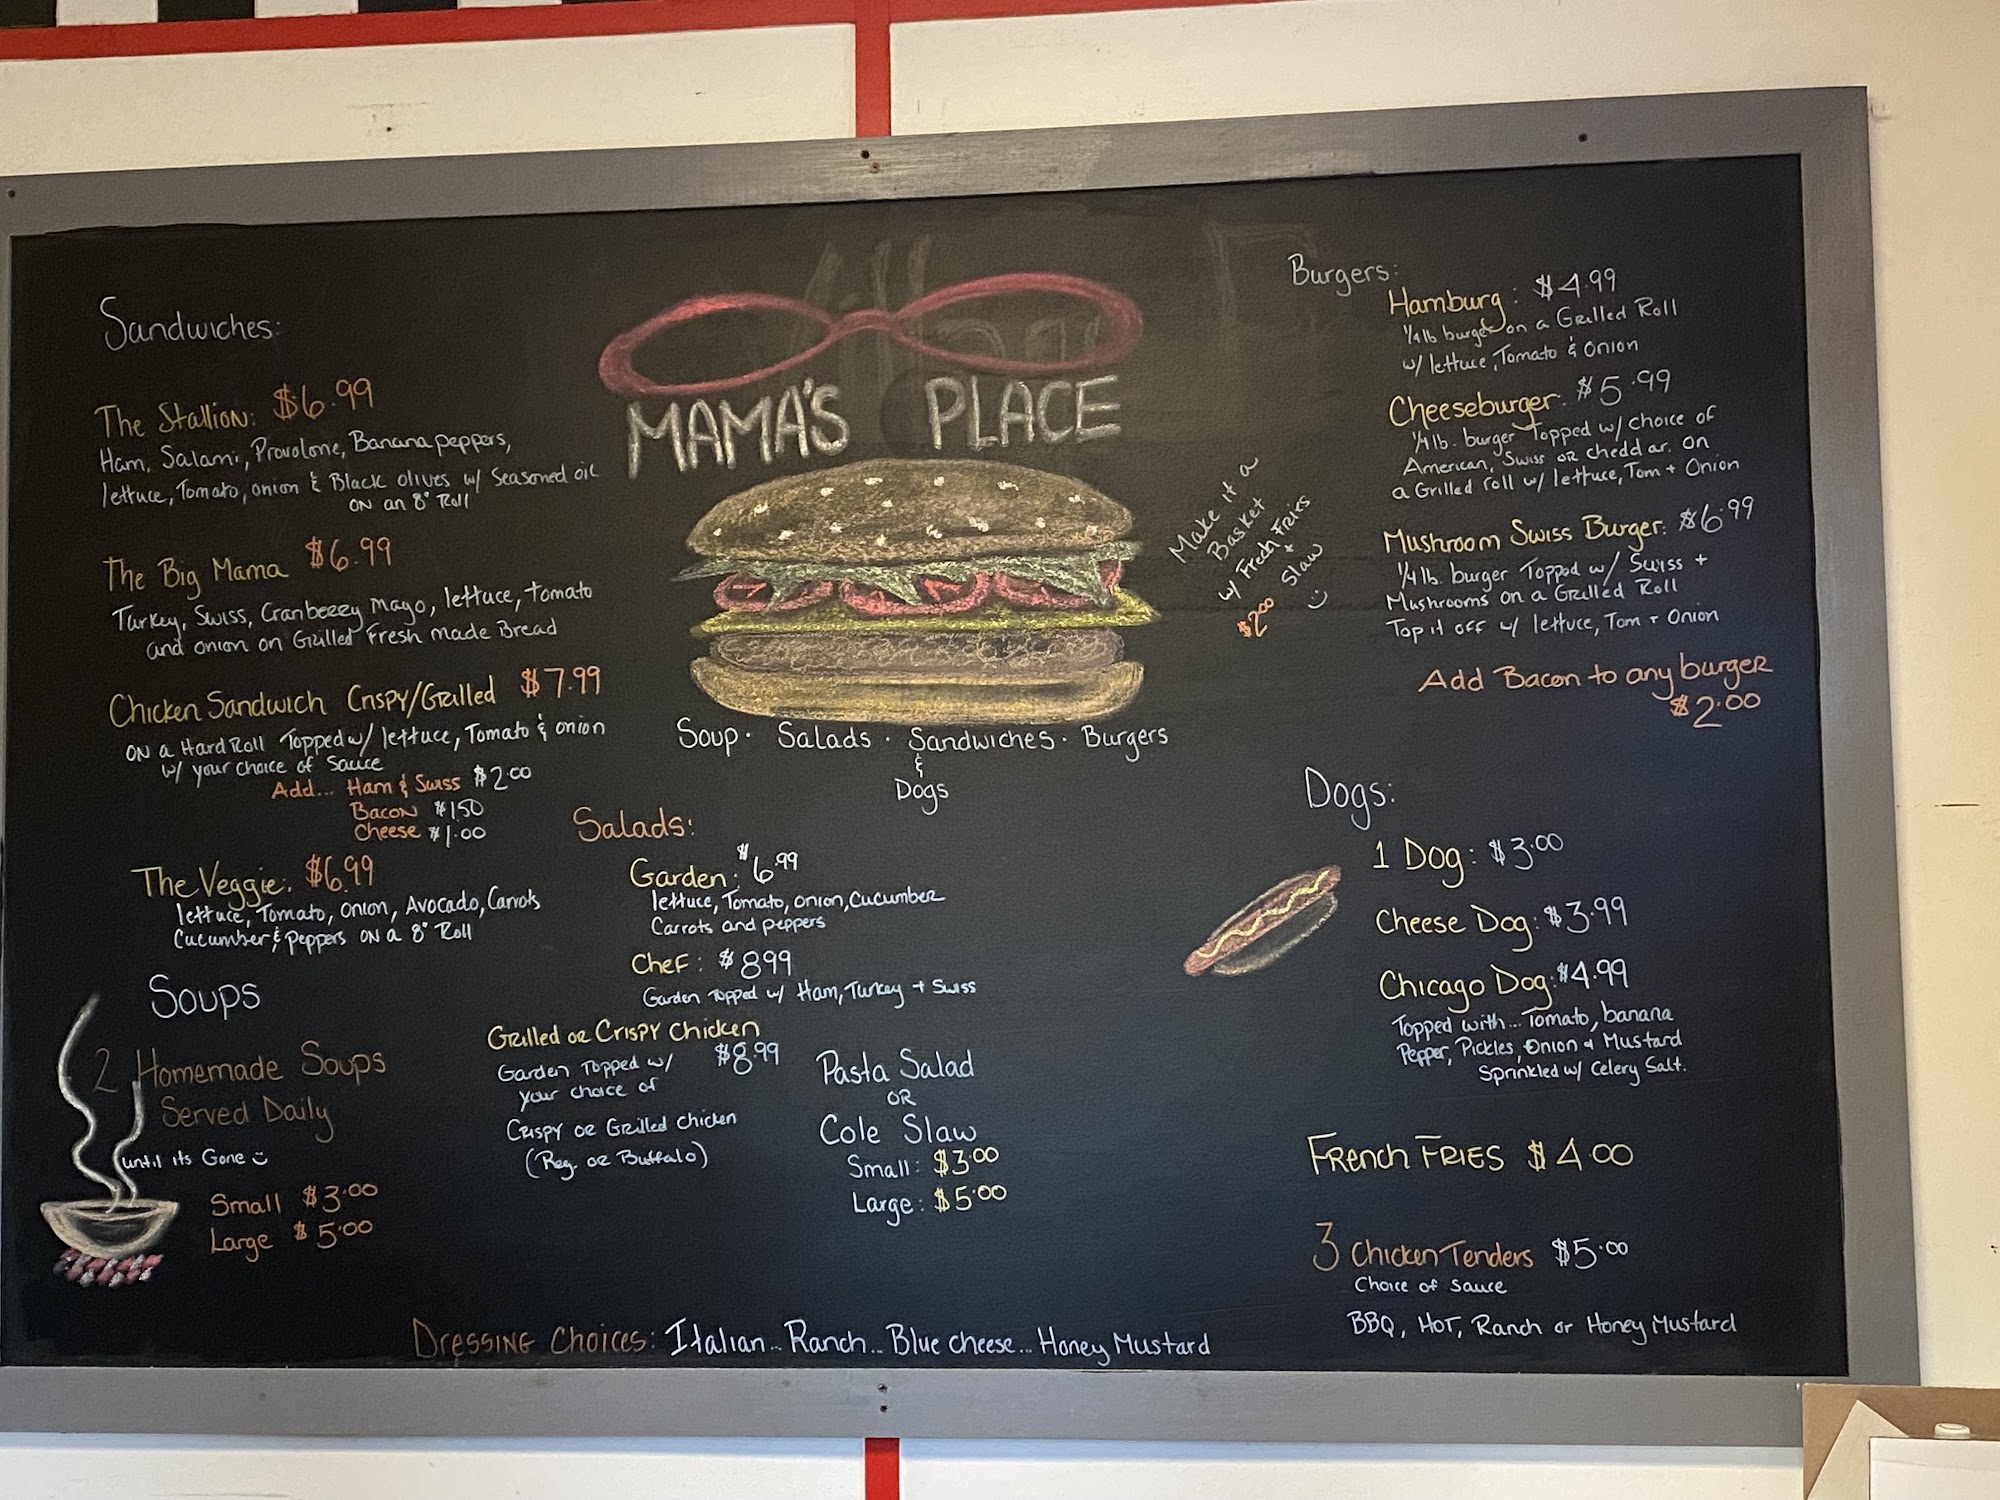 Sandwiches:
The Stallion: $6.99
Ham, Salami, Provolone, Banana peppers,
lettuce, Tomato, onion & Black olives w/ Seasoned oil
on an 8" Roll
The Big Mama $6.99
Turkey, Swiss, Cranberry Mayo, lettuce, tomato
and onion on Grilled Fresh made Bread
Chicken Sandwich Crispy/Grilled $7.99
on a Hard Roll Topped w/ lettuce, Tomato & onion
w/ your choice of Sauce
Add... Ham & Swiss $2.00
Bacon $1.50
Cheese $1.00
The Veggie: $6.99
lettuce, Tomato, onion, Avocado, Carrots
Cucumber & Peppers on a 8" Roll
Soups
2 Homemade Soups
Served Daily
until its Gone
Small $3.00
Large $5.00
MAMA'S PLACE
Soup · Salads · Sandwiches · Burgers
&
Dogs
Make it a
Basket
w/ Fresh Fries
+
Slaw
$2.00
Salads:
Garden: $6.99
lettuce, Tomato, onion, Cucumber
Carrots and peppers
Chef: $8.99
Garden Topped w/ Ham, Turkey + Swiss
Grilled or Crispy Chicken
$8.99
Garden Topped w/
your choice of
Crispy or Grilled Chicken
(Reg. or Buffalo)
Pasta Salad
OR
Cole Slaw
Small: $3.00
Large: $5.00
Burgers:
Hamburg: $4.99
1/4 lb burger on a Grilled Roll
w/ lettuce, Tomato & Onion
Cheeseburger: $5.99
1/4 lb. burger Topped w/ choice of
American, Swiss or cheddar. on
a Grilled roll w/ lettuce, Tom + Onion
Mushroom Swiss Burger: $6.99
1/4 lb. burger Topped w/ Swiss +
Mushrooms on a Grilled Roll
Top it off w/ lettuce, Tom + Onion
Add Bacon to any burger
$2.00
Dogs:
1 Dog: $3.00
Cheese Dog: $3.99
Chicago Dog: $4.99
Topped with... Tomato, banana
Pepper, Pickles, Onion & Mustard
Sprinkled w/ Celery Salt.
French Fries $4.00
3 Chicken Tenders $5.00
Choice of Sauce
BBQ, HOT, Ranch or Honey Mustard
Dressing Choices: Italian... Ranch... Blue cheese... Honey Mustard